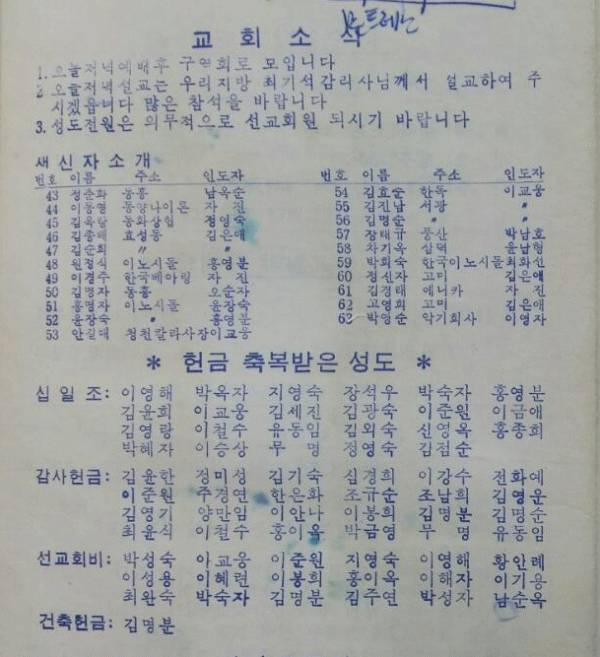 교 회 소 식
1. 오늘저녁예배후 구역회로 모입니다
2 오늘저녁설교는 우리지방 최기석감리사님께서 설교하여 주
시겠읍니다 많은 참석을 바랍니다
3. 성도전원은 의무적으로 선교회원 되시기 바랍니다
새신자소개
번호 이름 주소 인도자 번호 이름 주소 인도자
43 정춘화 동흥 남옥순 54 김효순 한독 이교웅
44 이동형 동양나이론 자 진 55 김진남 서광 〃
45 김옥당 동화상협 정영숙 56 김명순 〃
46 김종애 효성동 김은애 57 장태규 풍산 박남호
47 김순희 〃 〃 58 차기옥 삼덕 윤남형
48 원정식 이노시돌 홍영분 59 박희숙 한국이노시돌최화선
49 이경주 한국베아링 자 진 60 정신자 고미 김은애
50 김명자 동흥 오순자 61 김경태 에니카 자 진
51 홍명자 이노시돌 윤장숙 62 고영희 고미 김은애
52 윤장숙 〃 홍영분 62 박영순 악기회사 이영자
53 안길대 청천칼라사장이교웅
* 헌금 축복받은 성도 *
십 일 조: 이영해 박옥자 지영숙 장석우 박숙자 홍영분
김윤희 이교웅 김세진 김광숙 이준원 이금애
김영랑 이철수 유동임 김외숙 신영옥 홍종희
박혜자 이승상 무 명 정영숙 김점순
감사헌금: 김윤한 정미성 김기숙 심경희 이강수 전화예
이준원 주경연 한은화 조규순 조남희 김영운
김영기 양만임 이안나 이봉희 김명분 김명순
최윤식 이철수 홍이옥 박금영 무 명 유동임
선교회비: 박성숙 이교웅 이준원 지영숙 이영해 황안례
이성용 이혜련 이봉희 홍이옥 이해자 이기용
최완숙 박숙자 김명분 김주연 박성자 남순옥
건축헌금: 김명분